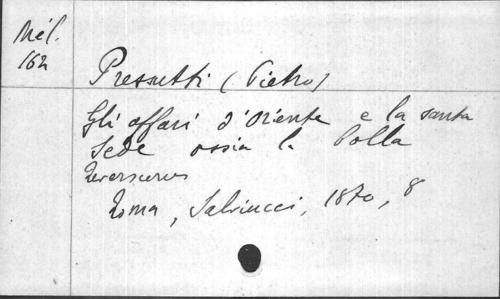 Mél.
162
Pressutti (Pietro)
Gli affari d'Oriente e la santa
Sede ossia la Bolla
Reversurus
Roma, Salviucci, 1870, 8